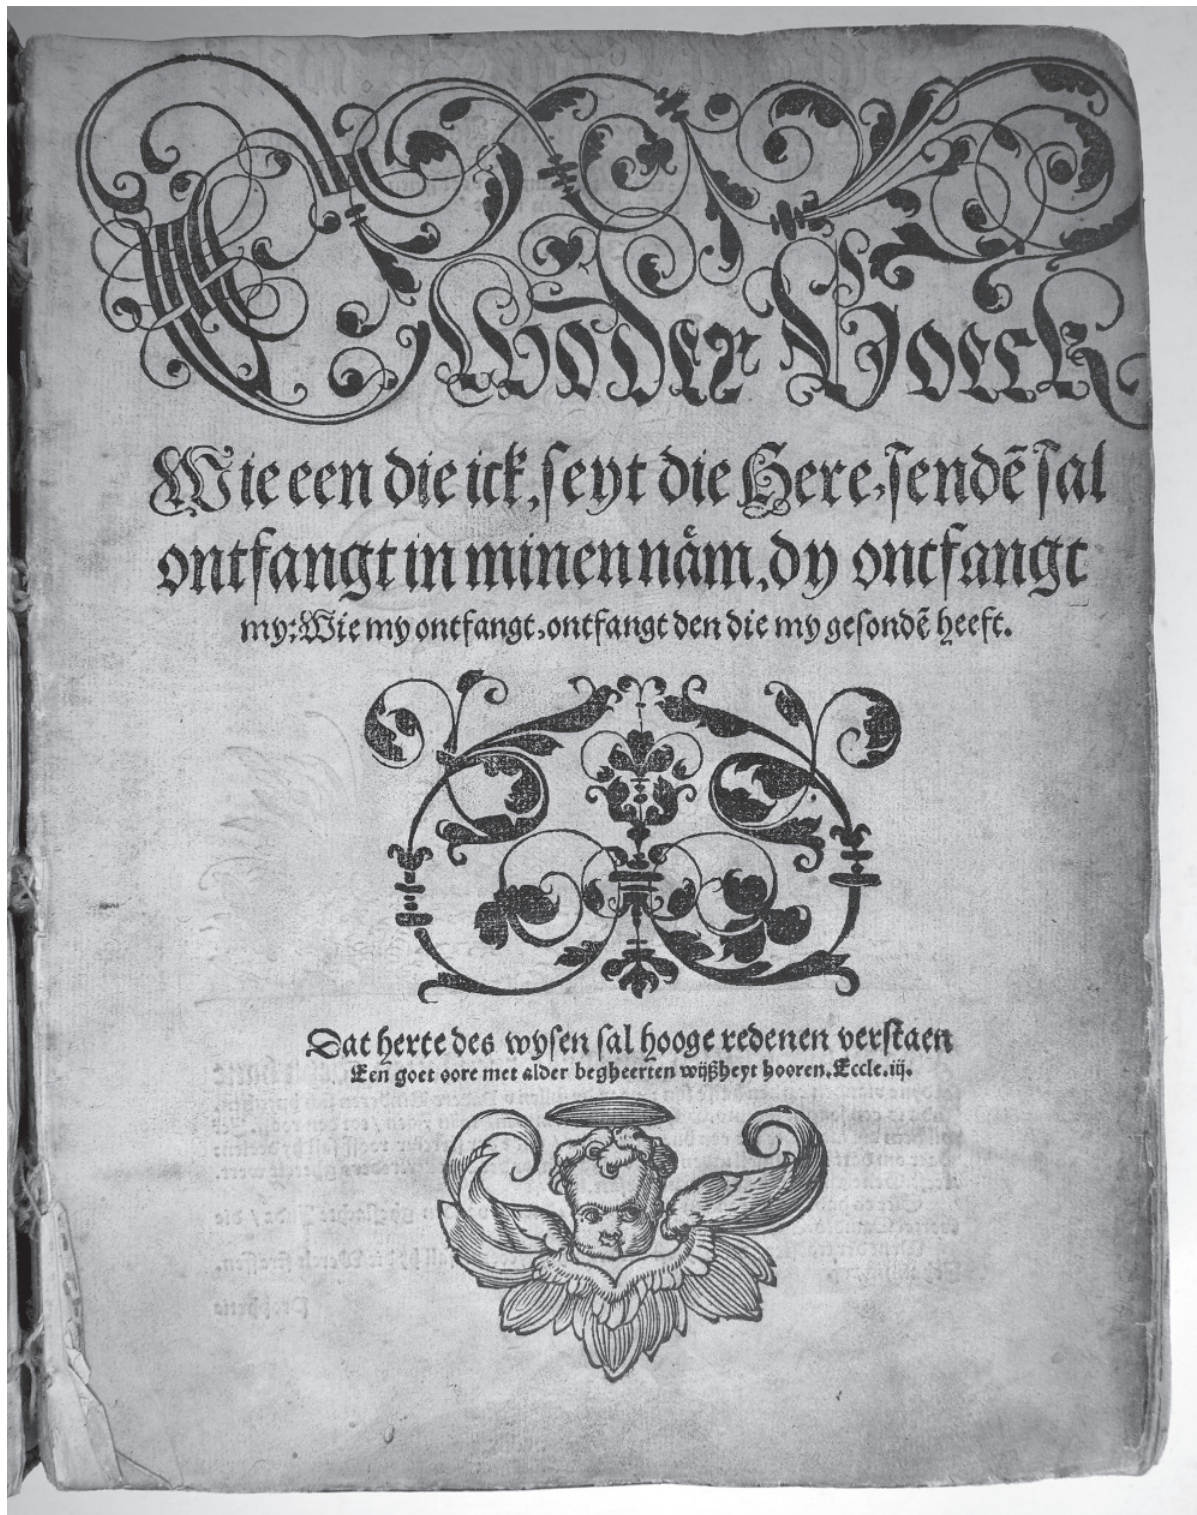 T'Wōder Boeck
Wie een die ick, seyt die Here, sendē sal
ontfangt in minen nåm, dy ontfangt
my: Wie my ontfangt, ontfangt den die my gesondē heeft.
Dat herte des wysen sal hooge redenen verstaen
Een goet oore met alder begheerten wijßheyt hooren. Eccle. iij.